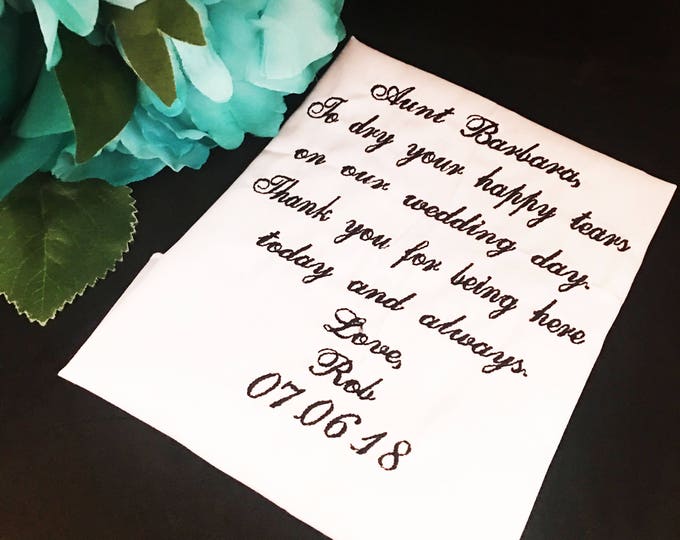 Aunt Barbara,
To dry your happy tears
on our wedding day.
Thank you for being here
today and always.
Love,
Rob
07.06.18